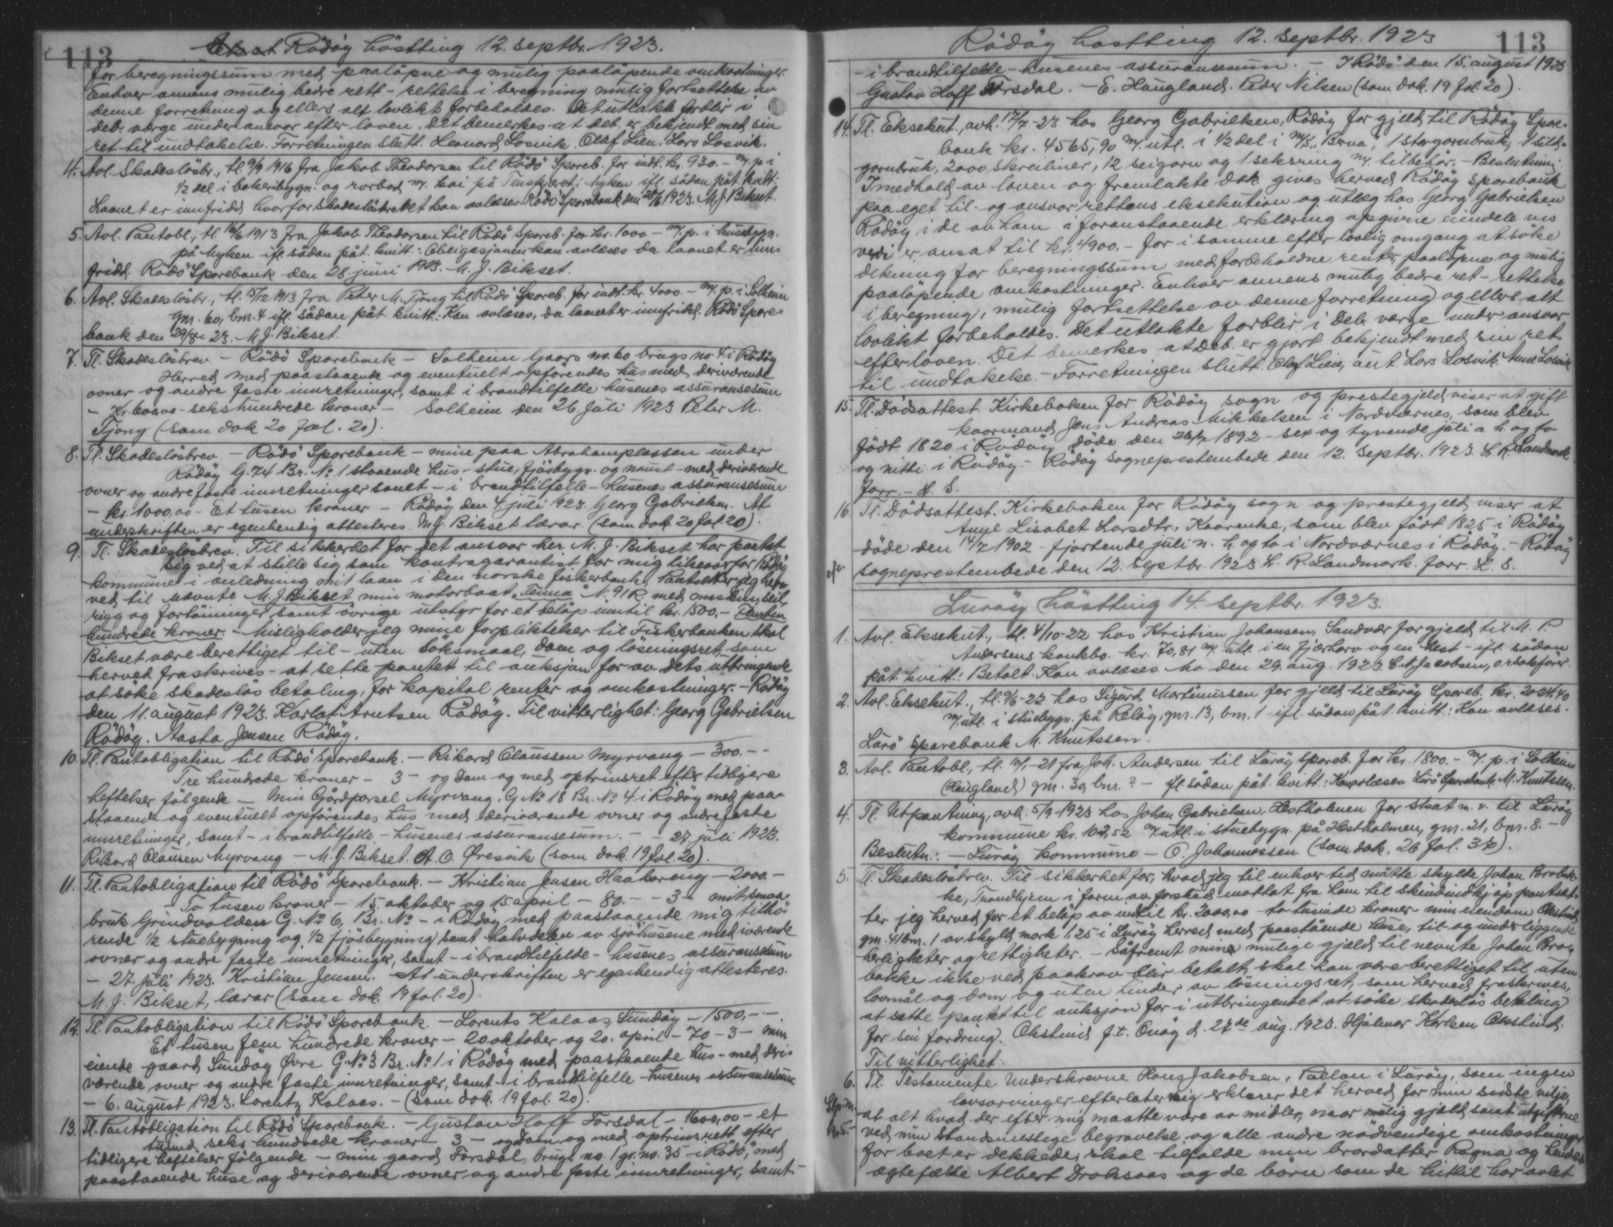 113
Rödöy hösttting 12. septbr. 1923.
for beregningssum med paalöpne og mulig paalöpende omkostninger.
Enhver annens mulig bedre rett - rettelse i beregning mulig fortsettelse av
denne forretning og ellers alt lovlikt forbeholdes. Det utlakte forbli i
deb. værge under ansvar efter loven. Det bemerkes at deb. er bekjendt med sin
ret til undtakelse. Forretningen slutt. Leonard Losvik. Olaf Lien. Lars Losvik.
4. Avl. Skadeslösbr., tl. 1916 fra Jakob Theodorsen til Rödö Spareb. for indt. kr. 930.- m. p. i
1/2 del i bolerbygn. og rorbod m. kai på Myken ifl. sådan påt. kvitt:
Laanet er innfridd hvorfor skadeslösbrevet kan avlæses. Rödö Sparebank den 1923. M. J. Bikset.
5. Avl. Pantobl., tl. 1913 fra Jakob Theodorsen til Rödö Spareb. for kr. 1000 - m. p. i husebygn.
på Myken ifl. sådan påt. kvitt: Obligasjonen kan avlæses da laanet er inn-
fridd. Rödö Sparebank den 28 juni 1923. M. J. Bikset.
6. Avl. Skadeslösbr., tl. 1913 fra Peter M. Tjong til Rödö Spareb. for indt. kr. 4000 - m. p. i Solheim
gnr. 60, bnr. 4 ifl. sådan påt. kvitt: Kan avlæses, da laanet er innfridd. Rödö Spare-
bank den 29/8 - 23. - M. J. Bikset.
7. Tl. Skadeslösbrev - Rödö Sparebank - Solheim Gaards no. 60 brugs no 4 i Rödöy
Herred med paastaaende og eventuelt opförendes hus med deriværende
ovner og andre faste innretninger, samt i brandtilfelle husenes assuransesum
- kr. 600,00 - sekshundrede kroner - Solheim den 26 Juli 1923 Peter M.
Tjong (som dok 20 fol. 20).
8. Tl. Skadeslösbrev. - Rödö Sparebank - mine paa Abrahamplassen under
Rödöy G. 74 Br. No 1 staaende hus - stue, fjösbygn. og naust - med deriværende
ovner og andre faste innretninger samt - i brandtilfelle - husenes assuransesum
- kr. 1000,00 - Et tusen kroner - Rödöy den 4 juli 1923 Georg Gabrielsen. At
underskriften er egenhendig attesteres M. J. Bikset lærer. (som dok. 20 fol. 20).
9. Tl. Skadeslösbrev. Til sikkerhet for det ansvar hr. M. J. Bikset har paatat
sig ved at stille sig som kontragarantist for mig likeoverfor Rödöy
kommune i anledning mit laan i den norske fiskerbank, pantsetter jeg her-
ved til nævnte M. J. Bikset min motorbaat "Tenna" N. 91 R. med maskin, seil,
rigg og fortöininger samt övrige utstyr for et belöp inntil kr. 1500,- Femten
hundrede kroner. - Misligholder jeg mine forpliktelser til Fiskerbanken skal
Bikset være berettiget til - uten söksmaal, dom og lösningsret som
hervet fraskrives - at sette pantet til auksjon for av dets utbringende
at söke skadeslös betaling, for kapital renter og omkostninger. - Rödöy
den 11. august 1923. Karlot Arntsen Rödöy. Til vitterlighet: Georg Gabrielsen
Rödöy. Aasta Jensen Rödöy.
10. Tl. Pantobligation til Rödö Sparebank. - Rikard Claussen Myrvang - 300.- -
Tre hundrede kroner - 3 - og dom og med optrinsret efter tidligere
heftelser fölgende - min Gårdparsel Myrvang. G No 18 Br. No 4 i Rödöy med paa-
staaende og eventuelt opförendes hus med deriværende ovner og andre faste
innretninger, samt - i brandtilfelle - husenes assuransesum. - - 27 juli 1923.
Rikard Clausen Myrvang - M. J. Bikset. A. O. Øresvik (som dok. 19 fol. 20).
11. Tl. Pantobligation til Rödö Sparebank. - Kristian Jensen - 2000 -
To tusen kroner - 15 oktober og 15 april - 80.- - 3 - mit smaa-
bruk Grindvolden G. No 6, Br. No - i Rödöy med paastaaende mig tilhö-
rende 1/2 stuebygning og 1/2 fjösbygning samt halvdelen av sjöhusene med iværende
ovner og andre faste innretninger, samt - i brandtilfelde - husenes assuransesum
- 27. juli 1923. Kristian Jensen. At underskriften er egenhendig attesteres
M. J. Bikset, lærer (som dok. 19 fol. 20).
12. Tl. Pantobligation til Rödö Sparebank. - Lorents Kalaas, Sundöy - 1500,- -
Et tusen fem hundrede kroner - 20 oktober og 20. april - 70 - 3 - min
eiende gaard Sundöy Øvre G. No 3 Br. No 1 i Rödöy med paastaaende hus - med deri-
værende ovner og andre faste innretninger, samt - i brandtilfelle - husenes assuransesum
- 6. august 1923. Lorentz Kalaas. - (som dok. 19 fol. 20).
13. Tl. Pantobligation til Rödö Sparebank. - Gustav Hoff Forsdal - 1600,00 - et
tusend seks hundrede kroner - 3 - og dom og med optrinsrett efter
tidligere heftelser fölgende - min gaard Forsdal, brugs no. 1 gr. no. 35 i Rödö, med
paastaaende huse og deriværende ovner og andre faste innretninger, samt -
Rödöy hösttting 12. septbr. 1923
113
- i brandtilfelle - husenes assuransesum. - I Rödö den 15 august 1923
Gustav Hoff Forsdal. - E. Haugland. Peder Nilsen (som dok. 19 fol. 20).
14. Tl. Eksekut., avh. 17/7 - 23 hos Georg Gabrielsen, Rödöy for gjeld til Rödöy Spare-
bank kr. 4565,90 m. utl. i 1/2 del i 1 storgarnbruk, 1 sild-
garnbruk, 2000 skreiliner, 12 seigarn og 1 seksring m. tilbehör. - Beslutning:
I medhold av loven og fremlakte dok. gives herved Rödöy Sparebank
paa eget til- og ansvar rettens eksekution og utlæg hos Georg Gabrielsen
Rödöy i de av ham i foranstaaende erklæring opgivne eiendele vis
verdi er ansat til kr. 4900.- for i samme efter lovlig omgang at söke
dekning for beregningssum med forbeholdne renter paalöpne og mulig
paalöpende omkostninger. Enhver annens mulig bedre ret - rettelse
i beregning, mulig fortsettelse av denne forretning og ellers alt
lovlikt forbeholdes. Det utlakte forblir i deb. værge under ansvar
efter loven. Det bemerkes at deb. er gjort bekjendt med sin ret
til undtakelse. - Forretningen slutt. Olaf Lien, aut. Lars Losvik
15. Tl. Dödsattest. Kirkeboken for Rödöy sogn og prestegjeld viser at gift
kaarmand Jens Andreas Mikkelsen i Nordværnes, som blev
födt 1820 i Rödöy, döde den 26/7 1892 - sex og tyvende juli a. h. og to
og nitti i Rödöy. - Rödöy sogneprestembede den 12. Septbr. 1923 L. R. Landmark.
forr. - L. S.
16. Tl. Dödsattest. Kirkeboken for Rödöy sogn og prestegjeld viser at
Anne Lisabet Larsdtr. Kaarenke, som blev födt 1825 i Rödöy
döde den 14/7 1902 - fjortende juli n. h. og to i Nordværnes i Rödöy. - Rödöy
sogneprestembede den 12. Septbr. 1923 L. R. Landmark. forr. L. S.
Luröy hösttting 14. septbr. 1923.
1. Avl. Eksekut., tl. 4/10-22 hos Kristian Johansen, Sandvær for gjeld til M. P.
Andersens konkbo. kr. 70,81 m. utl. i en fjærbore og en hest - ifl. sådan
påt. kvitt: Betalt. Kan avlæses. Mo den 29. aug. 1923 Jacobsen, o. r. sakförer.
2. Avl. Eksekut., tl. 4/6-22 hos Sigurd Martinussen for gjeld til Luröy Spareb. kr. 2024,40
m. utl. i stuebygn. på Relöy, gnr. 13, bnr. 1 - ifl. sådan påt. kvitt: Kan avlæses.
Lurö Sparebank M. Knutssen.
3. Avl. Pantobl., tl. -21 fra Joh. Andersen til Luröy Spareb. for kr. 1800.- m. p. i Solheim
(Haugland) gnr. 30, bnr. ? - ifl. sådan påt. kvitt: Kan avlæses Lurö Sparebank M. Knutssen.
4. Tl. Utpantning, avh. 5/9 1923 hos Johan Gabrielsen, Hestholmen for skat m. v. til Luröy
kommune kr. 102,52 m. utl. i stuebygn. på Hestholmen, gnr. 21, bnr. 8. -
Beslutn.: - Luröy kommune - O. Johannessen (som dok. 26 fol. 32).
5. Tl. Skadeslösbrev. Til sikkerhet for, hvad jeg til enhver tid måtte skylde Johan Brobak-
ke, Trondhjem i form av forskud mottat fra ham til skindindkjöp pantset-
ter jeg herved for et belöp av indtil kr. 2000,00 - to tusinde kroner min eiendom Okslund,
gnr. 41 bnr. 1 av skyld mark 1.25 i Luröy herred med paastående huse, til- og underliggende
herligheter og rettigheter. - Såfremt mine mulige gjeld til nevnte Johan Bro-
bakke ikke ved paakrav blir betalt, skal han være berettiget til, uten
lovmål og dom og uten hinder av lösningsret, som herved fraskrives,
at sette pantet til auksjon for i utbringendet at söke skadeslös betaling
for sin fordring. Okslund p.t. Onöy d. 27de aug. 1923. Hjalmar Karlsen Okslund.
Til vitterlighet.
6. Tl. Testamente. Underskrevne Hans Jakobsen, i Luröy, som ingen
livsarvinger efterlater sig erklærer det herved for min sidste vilje,
at alt hvad der efter mig maatte være av midler, naar mulig gjeld samt utgifterne
ved min standsmessige begravelse og alle andre nödvendige omkostninger
for boet er dekkede, skal tilfalde min brordatter Ragna og hendes
ægtefælle Albert Droksaas og de barn som de hittil har avlet